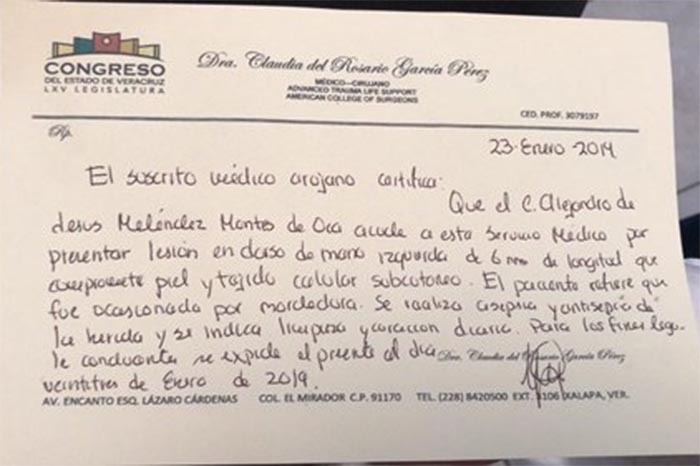 CONGRESO
DEL ESTADO DE VERACRUZ
LXV LEGISLATURA
Dra. Claudia del Rosario García Pérez
MÉDICO—CIRUJANO
ADVANCED TRAUMA LIFE SUPPORT
AMERICAN COLLEGE OF SURGEONS
CED. PROF. 3079197
Rp.
23-Enero-2019
El suscrito médico cirujano certifica:
Que el C. Alejandro de
Jesus Meléndez Montes de Oca acude a este Servicio Médico por
presentar lesión en dorso de mano izquierda de 6 mm de longitud que
compromete piel y tejido celular subcutaneo. El paciente refiere que
fue ocasionada por mordedura. Se realiza asepsia y antisepsia de
la herida y se indica limpieza y curacion diaria. Para los fines lega-
le conducente se expide el presente al día
Dra. Claudia del Rosario García Pérez
veintitres de Enero de 2019.
AV. ENCANTO ESQ. LÁZARO CÁRDENAS COL. EL MIRADOR C.P. 91170 TEL. (228) 8420500 EXT. 3106 XALAPA, VER.